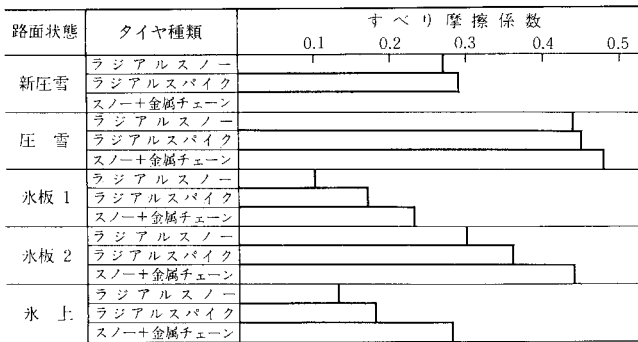 路面状態 タイヤ種類 すべり摩擦係数
0.1 0.2 0.3 0.4 0.5
新圧雪 ラジアルスノー
ラジアルスパイク
スノー+金属チェーン
圧雪 ラジアルスノー
ラジアルスパイク
スノー+金属チェーン
氷板1 ラジアルスノー
ラジアルスパイク
スノー+金属チェーン
氷板2 ラジアルスノー
ラジアルスパイク
スノー+金属チェーン
氷上 ラジアルスノー
ラジアルスパイク
スノー+金属チェーン